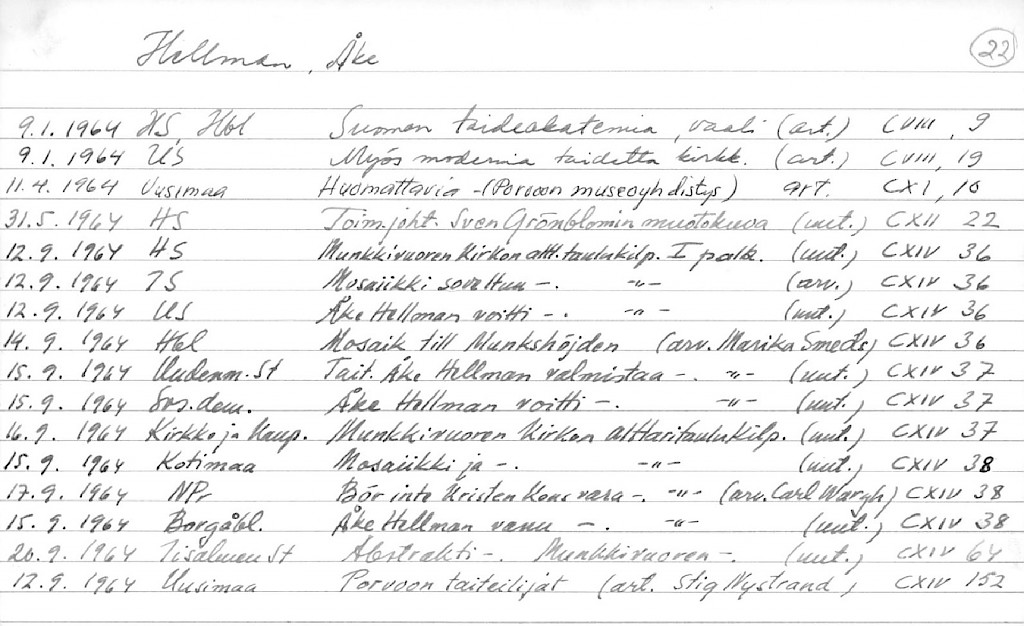 Hellman, Åke 22
9.1.1964 HS, Hbl Suomen taideakatemia, vaali (art.) CVIII, 9
9.1.1964 US Myös modernia taidetta kirkk. (art.) CVIII, 19
11.4.1964 Uusimaa Huomattavia - (Porvoon museoyhdistys) art. CXI, 10
31.5.1964 HS Toim.joht. Sven Grönblomin muotokuva (uut.) CXII 22
12.9.1964 HS Munkkivuoren Kirkon altt.taulukilp. I palk. (uut.) CXIV 36
12.9.1964 IS Mosaiikki soveltuu -. -"- (arv.) CXIV 36
12.9.1964 US Åke Hellman voitti -. -"- (uut.) CXIV 36
14.9.1964 Hbl Mosaik till Munkshöjden (arv. Marika Smeds) CXIV 36
15.9.1964 Uudenm. St Tait. Åke Hellman valmistaa -. -"- (uut.) CXIV 37
15.9.1964 Sos.dem. Åke Hellman voitti -. -"- (uut.) CXIV 37
16.9.1964 Kirkko ja Kaup. Munkkivuoren Kirkon alttaritaulukilp. (uut.) CXIV 37
15.9.1964 Kotimaa Mosaiikki ja -. -"- (uut.) CXIV 38
17.9.1964 NPr Bör inte Kristen Kons vara -. -"- (arv. Carl Wargh) CXIV 38
15.9.1964 Borgåbl. Åke Hellman vann -. -"- (uut.) CXIV 38
20.9.1964 Iisalmen St Abstrakti -. Munkkivuoren -. (uut.) CXIV 64
12.9.1964 Uusimaa Porvoon taiteilijat (art. Stig Nystrand) CXIV 152